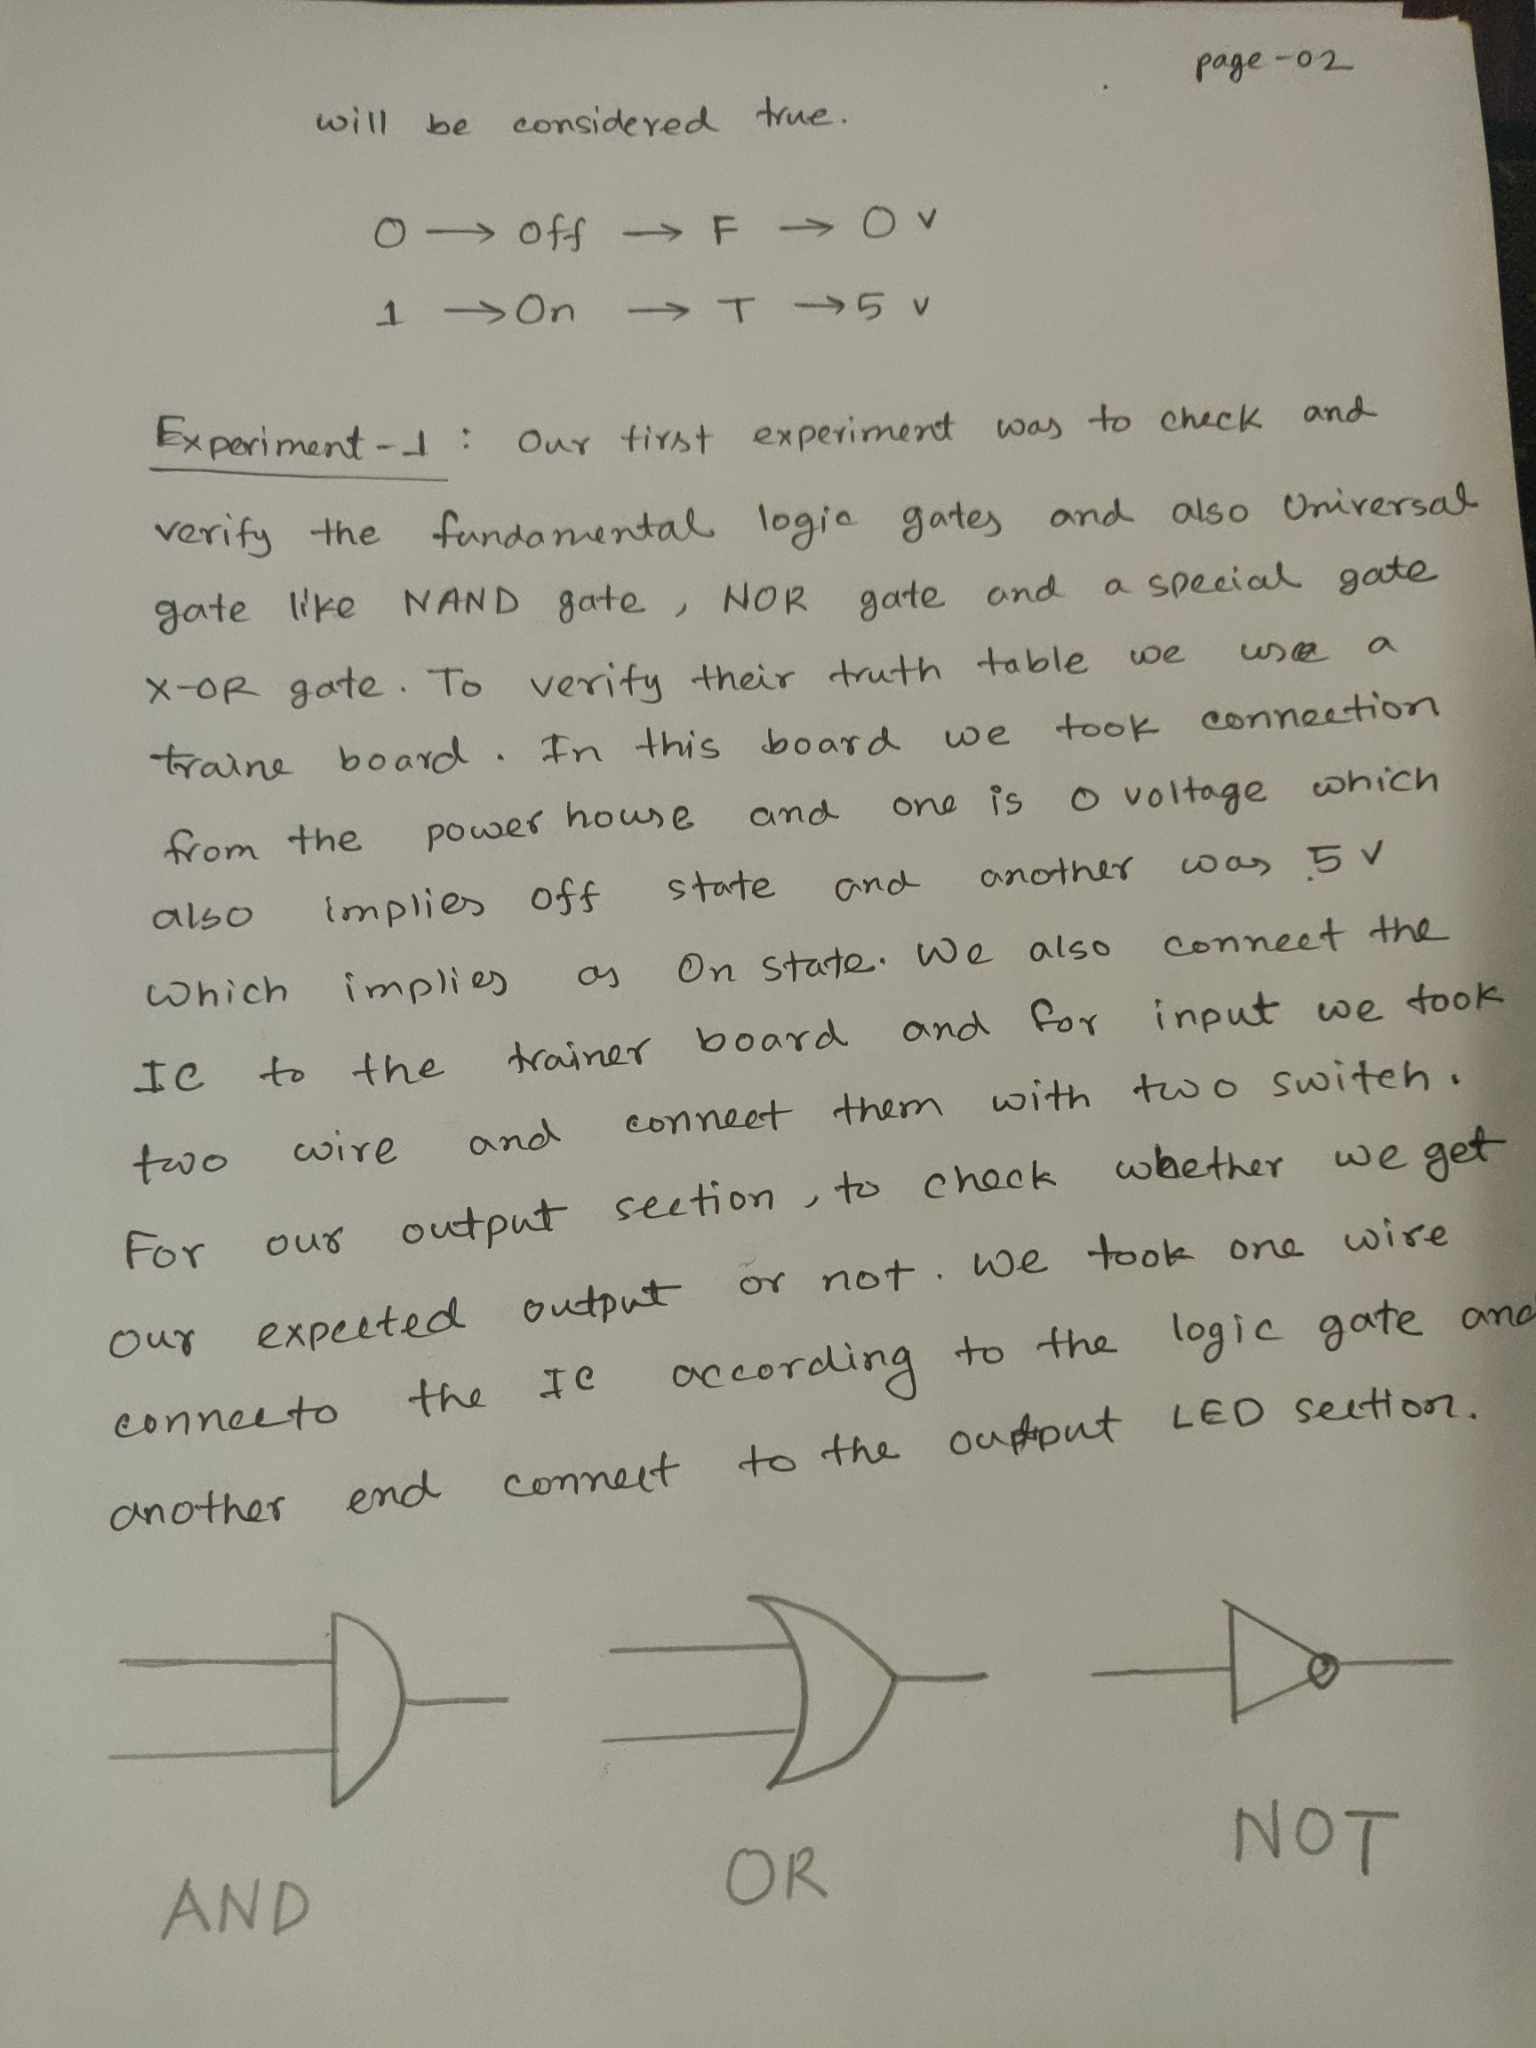 page-02
will be considered true.
0 → off → F → 0 v
1 → On → T → 5 v
Experiment-1 : Our first experiment was to check and
verify the fundamental logic gates and also Universal
gate like NAND gate, NOR gate and a special gate
X-OR gate. To verify their truth table we use a
traine board. In this board we took connection
from the power house and one is 0 voltage which
also implies off state and another was 5 v
which implies as On state. We also connect the
IC to the trainer board and for input we took
two wire and connect them with two switch.
For our output section, to check whether we get
our expected output or not. We took one wire
connecto the IC according to the logic gate and
another end connect to the output LED section.
AND OR NOT